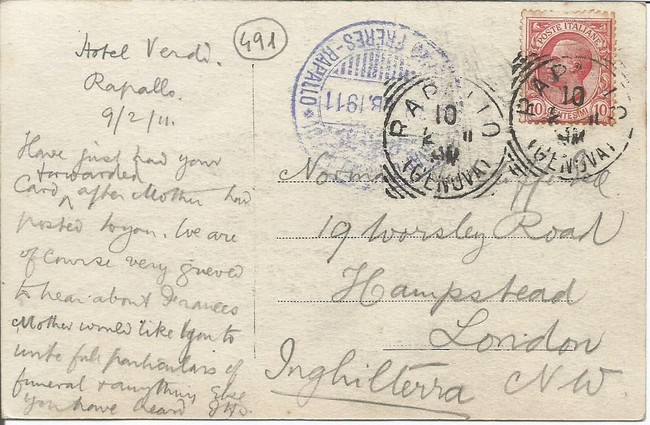 Hotel Verdi.
Rapallo.
9/2/11.
491
Have just had your
forwarded
Card ^ after Mother had
posted to you. We are
of course very grieved
to hear about Frances
Mother would like you to
write full particulars of
funeral & anything else
you have heard
FRÈRES-RAPALLO
1911
RAPALLO
10
(GENOVA)
POSTE ITALIANE
10 CENTESIMI 10
RAPALLO
10
(GENOVA)
Norman
19 Worsley Road
Hampstead
London
Inghilterra N.W.